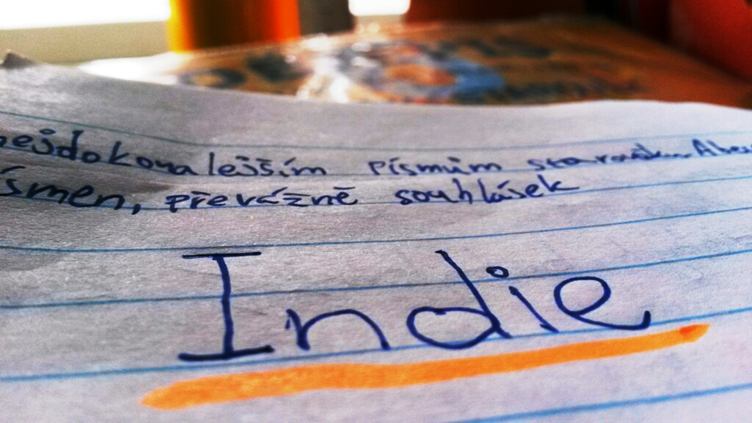 nejdokonalejším písmům starověku. Abec
ísmen, převážně souhlásek
Indie